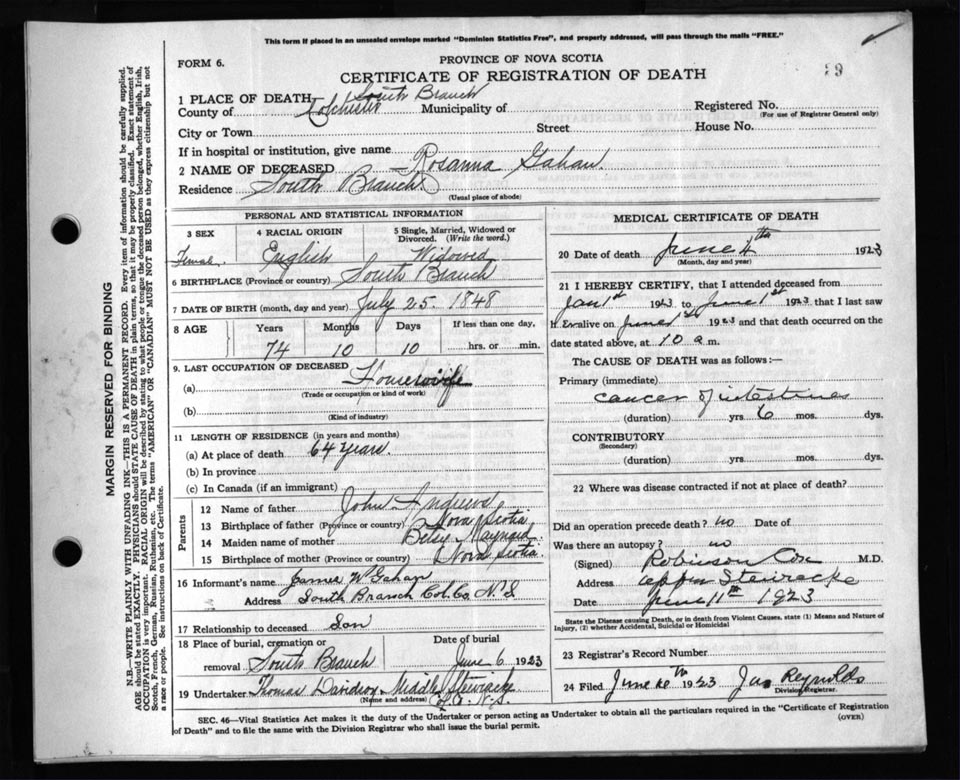 This form if placed in an unsealed envelope marked "Dominion Statistics Free", and properly addressed, will pass through the mails "FREE."
FORM 6.
PROVINCE OF NOVA SCOTIA
CERTIFICATE OF REGISTRATION OF DEATH
39
1 PLACE OF DEATH South Branch
County of Colchester Municipality of Registered No.
(For use of Registrar General only)
City or Town Street House No.
If in hospital or institution, give name
2 NAME OF DECEASED Rosanna Gahan
Residence South Branch
(Usual place of abode)
PERSONAL AND STATISTICAL INFORMATION
3 SEX 4 RACIAL ORIGIN 5 Single, Married, Widowed or Divorced. (Write the word.)
Female. English Widowed
6 BIRTHPLACE (Province or country) South Branch
7 DATE OF BIRTH (month, day and year) July 25. 1848
8 AGE Years Months Days If less than one day,
74 10 10 hrs. or min.
9. LAST OCCUPATION OF DECEASED
(a) Housewife
(Trade or occupation or kind of work)
(b)
(Kind of industry)
11 LENGTH OF RESIDENCE (in years and months)
(a) At place of death 64 years.
(b) In province
(c) In Canada (if an immigrant)
Parents
12 Name of father John Andrews
13 Birthplace of father (Province or country) Nova Scotia
14 Maiden name of mother Betsy Maynard
15 Birthplace of mother (Province or country) Nova Scotia
16 Informant's name James W Gahan
Address South Branch Col. Co N.S
17 Relationship to deceased Son
18 Place of burial, cremation or Date of burial
removal South Branch June 6 1923
19 Undertaker Thomas Davidson Middle Stewiacke
(Name and address) N.S.
MEDICAL CERTIFICATE OF DEATH
20 Date of death June 4th 1923
(Month, day and year)
21 I HEREBY CERTIFY, that I attended deceased from
Jan 1st 1923 to June 1st 1923 that I last saw
alive on June 1st 1923 and that death occurred on the
date stated above, at 10 a m.
The CAUSE OF DEATH was as follows:—
Primary (immediate)
cancer of intestines
(duration) yrs 6 mos. dys.
CONTRIBUTORY
(Secondary)
(duration) yrs. mos. dys.
22 Where was disease contracted if not at place of death?
Did an operation precede death? no Date of
Was there an autopsy? no
(Signed) Robinson Cox M.D.
Address Upper Stewiacke
Date June 11th 1923
State the Disease causing Death, or in death from Violent Causes, state (1) Means and Nature of
Injury, (2) whether Accidental, Suicidal or Homicidal
23 Registrar's Record Number
24 Filed June 1923 Jas Reynolds
Division Registrar.
SEC. 46—Vital Statistics Act makes it the duty of the Undertaker or person acting as Undertaker to obtain all the particulars required in the "Certificate of Registration
of Death" and to file the same with the Division Registrar who shall issue the burial permit.
(OVER)
MARGIN RESERVED FOR BINDING
N.B.—WRITE PLAINLY WITH UNFADING INK—THIS IS A PERMANENT RECORD. Every item of information should be carefully supplied.
AGE should be stated EXACTLY. PHYSICIANS should STATE CAUSE OF DEATH in plain terms, so that it may be properly classified. Exact statement of
OCCUPATION is very important. RACIAL ORIGIN will be described by stating to what people or tongue the deceased person belonged, whether English, Irish,
Scotch, French, German, Russian, Ruthenian, etc. The terms "AMERICAN" OR "CANADIAN" MUST NOT BE USED as they express citizenship but not
a race or people. See instructions on back of Certificate.